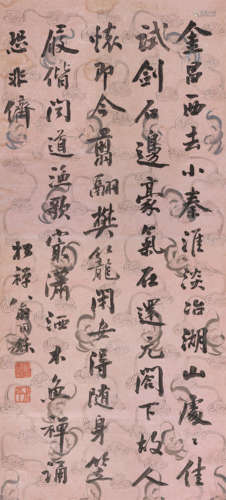 金昌西去小秦淮淡冶湖山處〻佳
試劍石邊豪氣在還元閣下故人
懷即今翦翮樊籠閉安得隨身笠
屐偕聞道漁歌窮瀟洒木魚禪誦
恐非儕
松禪翁同龢